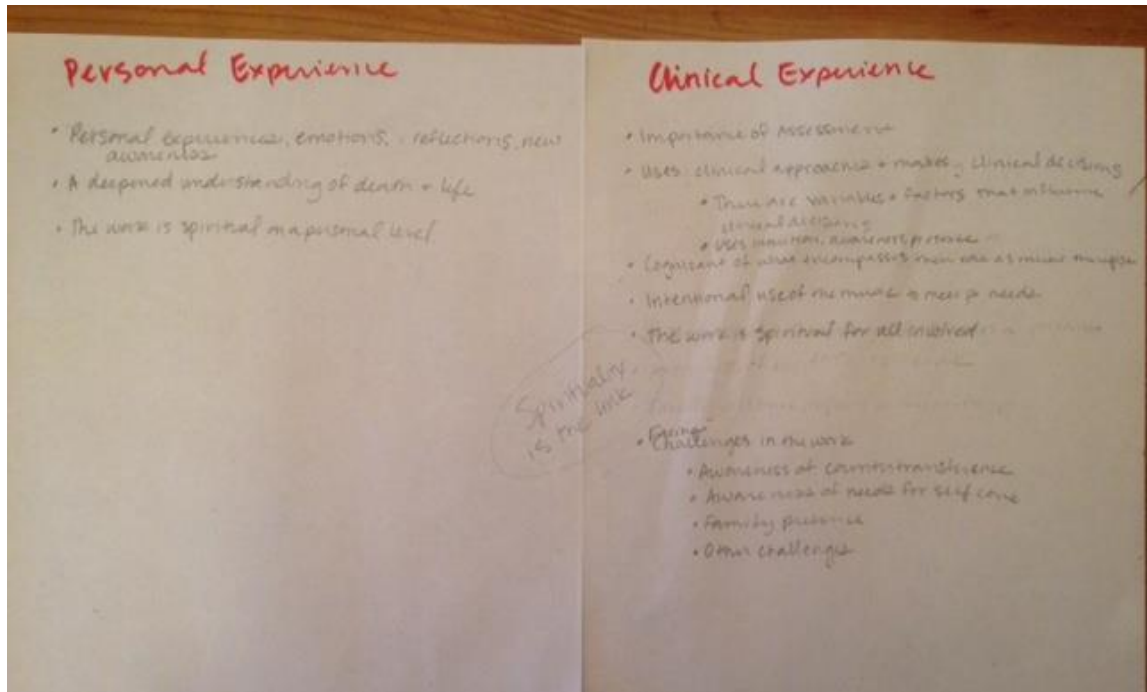 Personal Experience
• Personal experiences, emotions, reflections, new
awareness
• A deepened understanding of death + life
• The work is spiritual on a personal level
Clinical Experience
• Importance of Assessment
• Uses clinical approaches + makes clinical decisions
• There are variables + factors that influence
clinical decisions
• Uses intuition, awareness, presence
• Cognizant of what encompasses their role as music therapist
• Intentional use of the music to meet needs
• The work is spiritual for all involved
Spirituality
is the link
• Facing
Challenges in the work
• Awareness of countertransference
• Awareness of needs for self care
• Family presence
• Other challenges